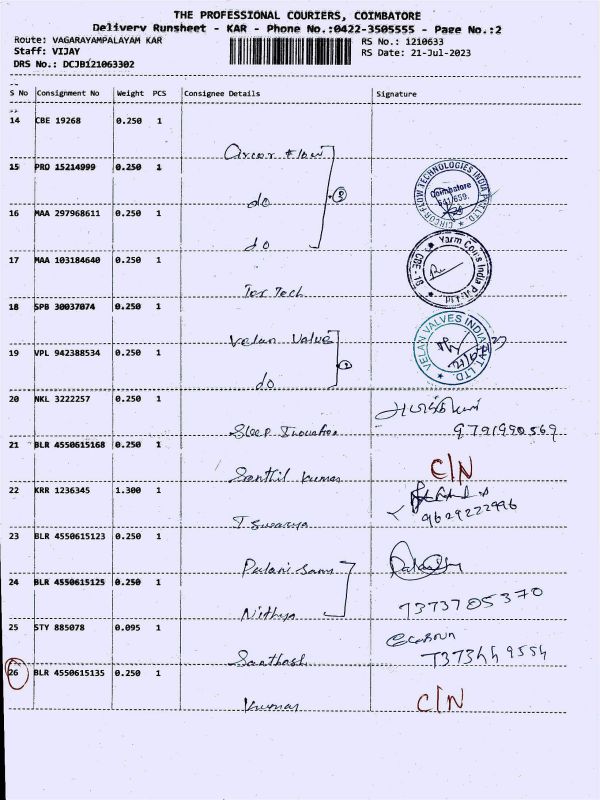 THE PROFESSIONAL COURIERS, COIMBATORE
Delivery Runsheet - KAR - Phone No.:0422-3505555 - Page No.:2
Route: VAGARAYAMPALAYAM KAR
RS No.: 1210633
Staff: VIJAY
RS Date: 21-Jul-2023
DRS No.: DCJB121063302
S No Consignment No Weight PCS Consignee Details Signature
14 CBE 19268 0.250 1
Circor Flow
15 PRO 15214999 0.250 1
do
3
16 MAA 297968611 0.250 1
do
CIRCOR FLOW TECHNOLOGIES INDIA PVT LTD
Coimbatore
641 659.
17 MAA 103184640 0.250 1
Tex Tech
Yarm Con's India Pvt Ltd
CBE -
18 SPB 30037074 0.250 1
Velan Valve
19 VPL 942388534 0.250 1
do
2
VELAN VALVES INDIA PVT. LTD.
20 NKL 3222257 0.250 1
Sleep
9791990569
21 BLR 4550615168 0.250 1
Santhil Kumar
C/N
22 KRR 1236345 1.300 1
9629222996
T Swarya
23 BLR 4550615123 0.250 1
Palani Samy
24 BLR 4550615125 0.250 1
Nithya
7373705370
25 STY 885078 0.095 1
Santhosh
7373449554
26 BLR 4550615135 0.250 1
Kumar
C/N